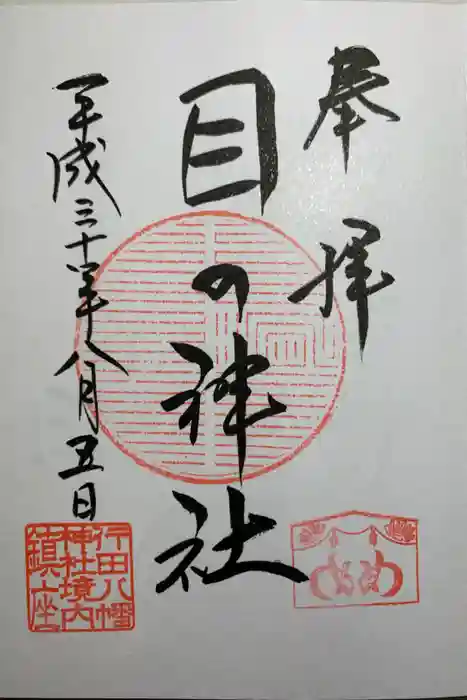 奉拝
目の神社
平成三十年八月五日
行田八幡
神社境内
鎮座